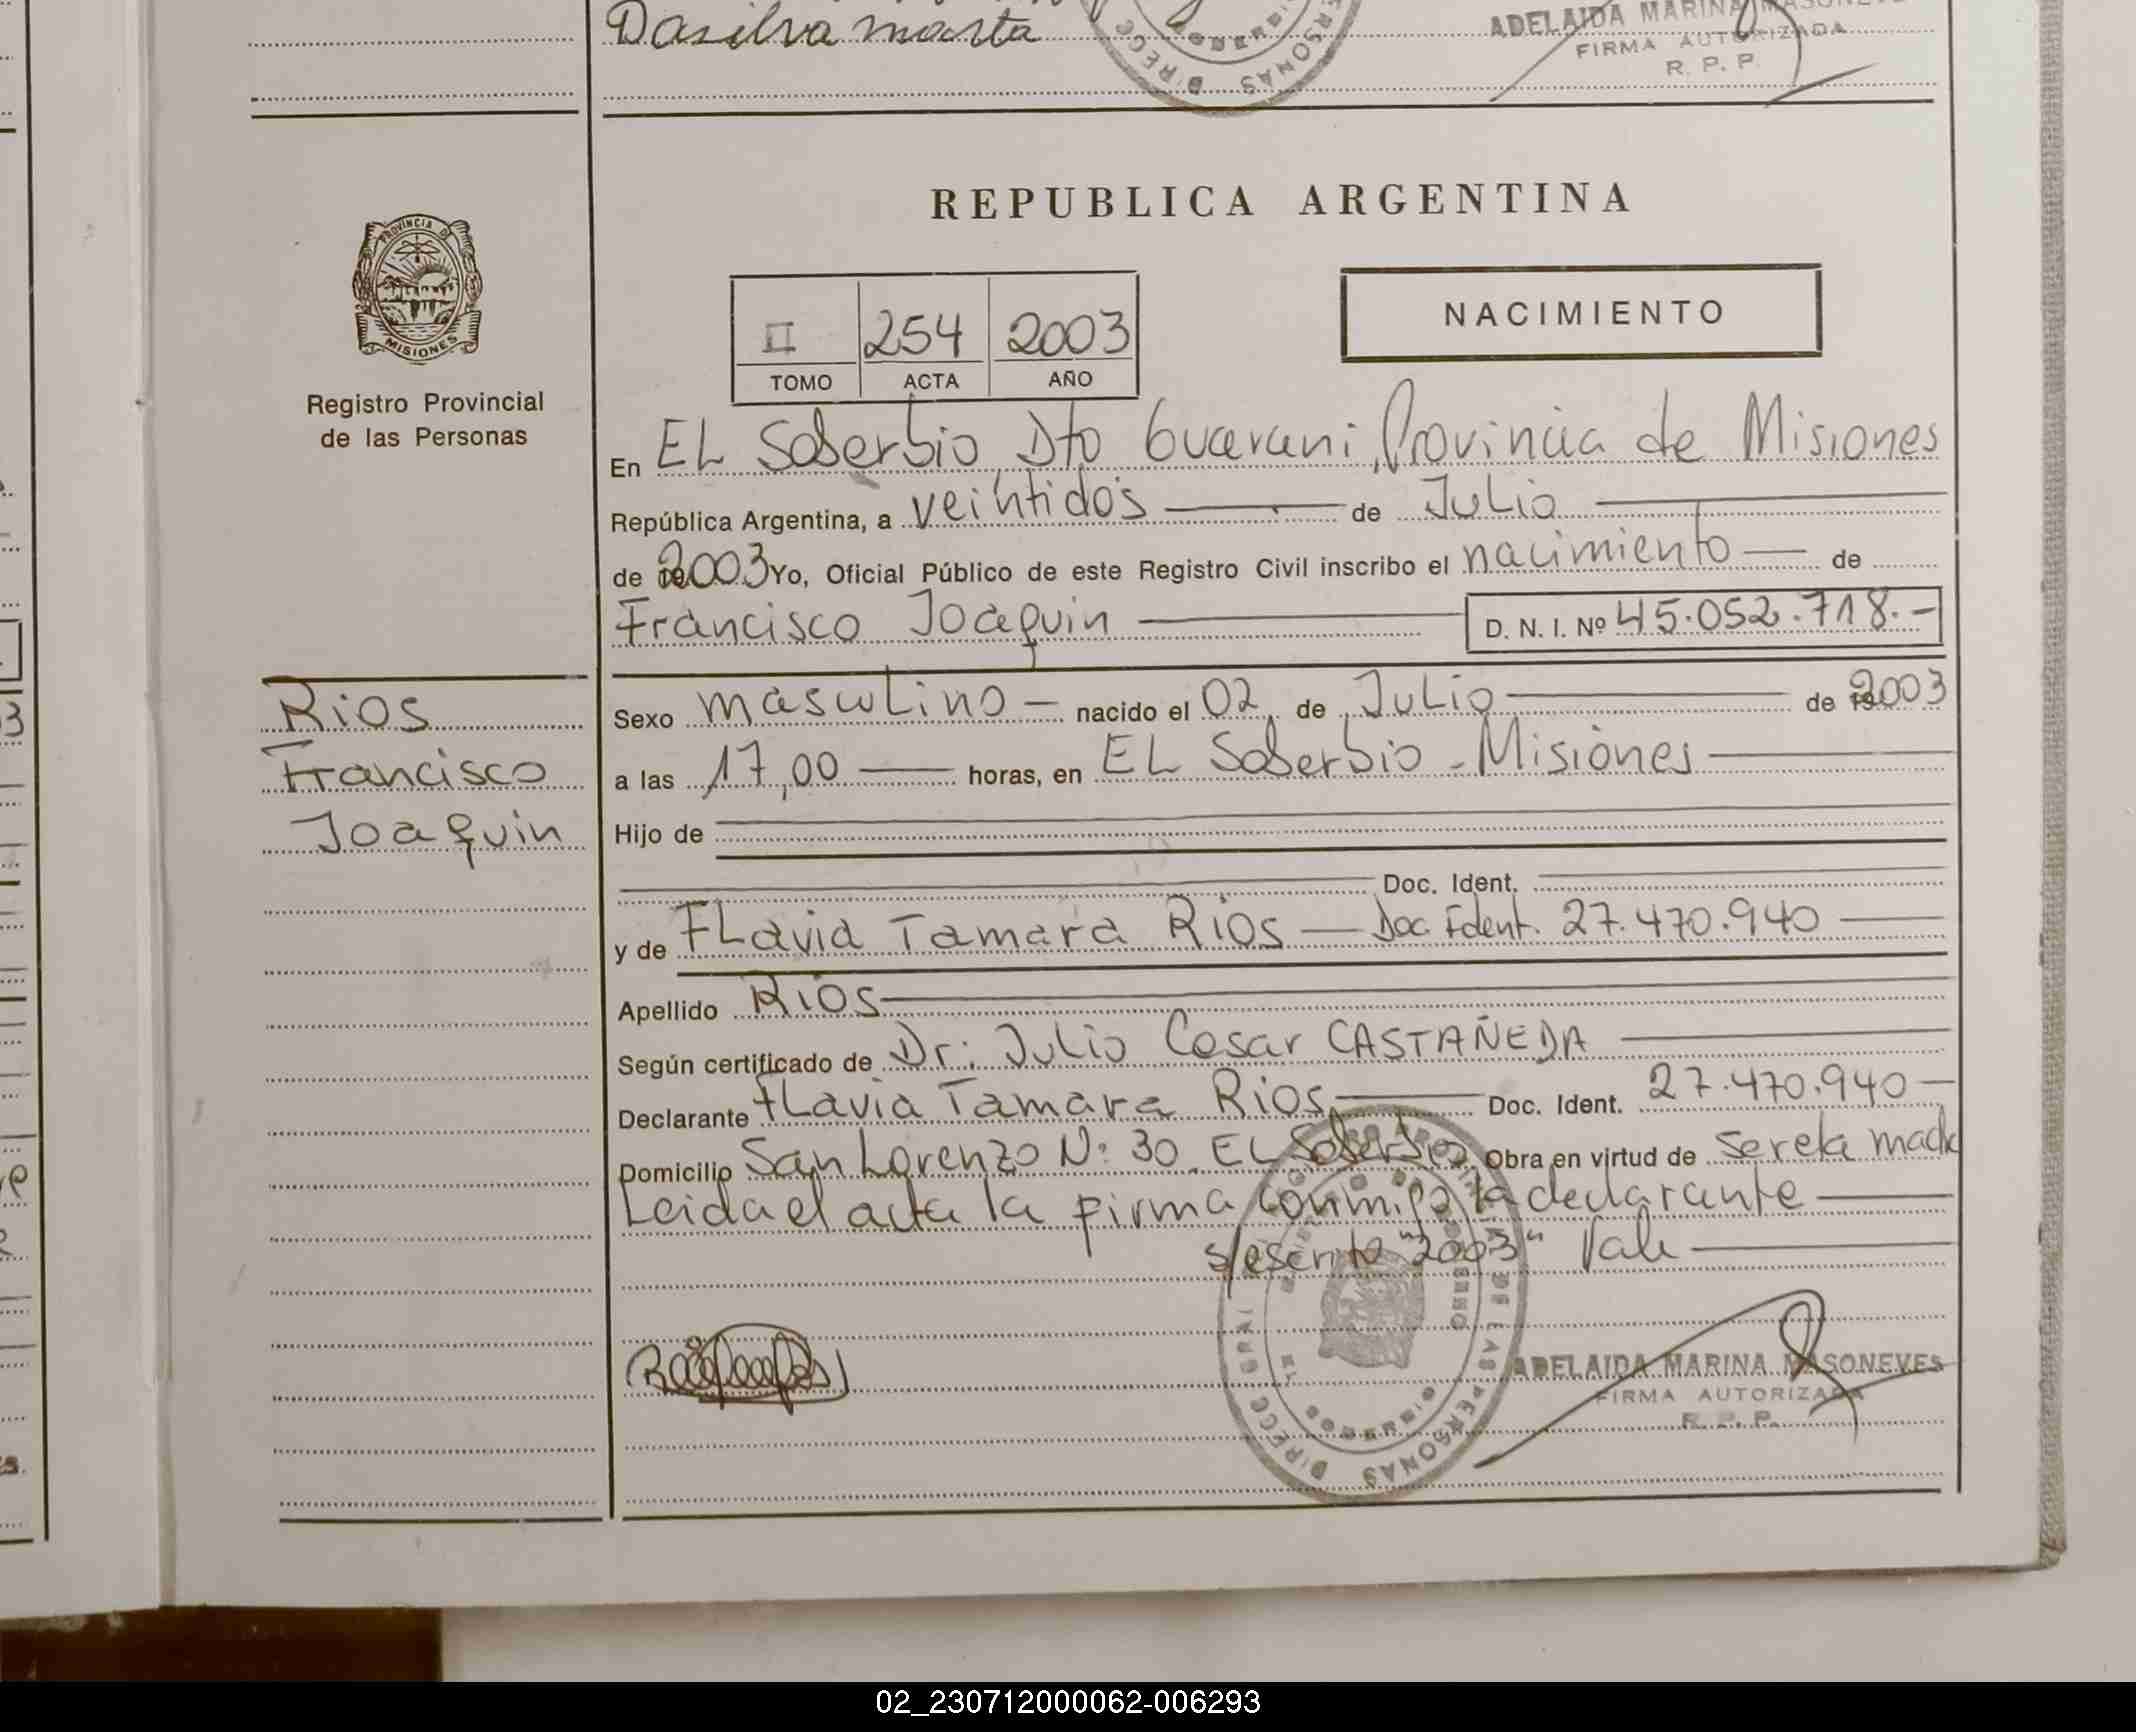 Dasilva marta
ADELAIDA MARINA MASONEVES
FIRMA AUTORIZADA
R. P. P.
REPUBLICA ARGENTINA
PROVINCIA D
MISIONES
Registro Provincial
de las Personas
II 254 2003
TOMO ACTA AÑO
NACIMIENTO
En EL Soberbio Dto Guarani, Provincia de Misiones
República Argentina, a veintidós de Julio
de 2003 Yo, Oficial Público de este Registro Civil inscribo el nacimiento de
Francisco Joaquin D. N. I. Nº 45.052.718.-
Rios
Francisco
Joaquin
Sexo masculino nacido el 02 de Julio de 2003
a las 17,00 horas, en EL Soberbio - Misiones
Hijo de
Doc. Ident.
y de FLavia Tamara Rios Doc. Ident. 27.470.940
Apellido Rios
Según certificado de Dr: Julio Cesar CASTAÑEDA
Declarante FLavia Tamara Rios Doc. Ident. 27.470.940
Domicilio San Lorenzo Nº 30. EL Soberbio Obra en virtud de ser ela madre
Leida el acta la firma conmigo la declarante
s/escrito "2003" Vale
ADELAIDA MARINA MASONEVES
FIRMA AUTORIZADA
R. P. P.
02_230712000062-006293